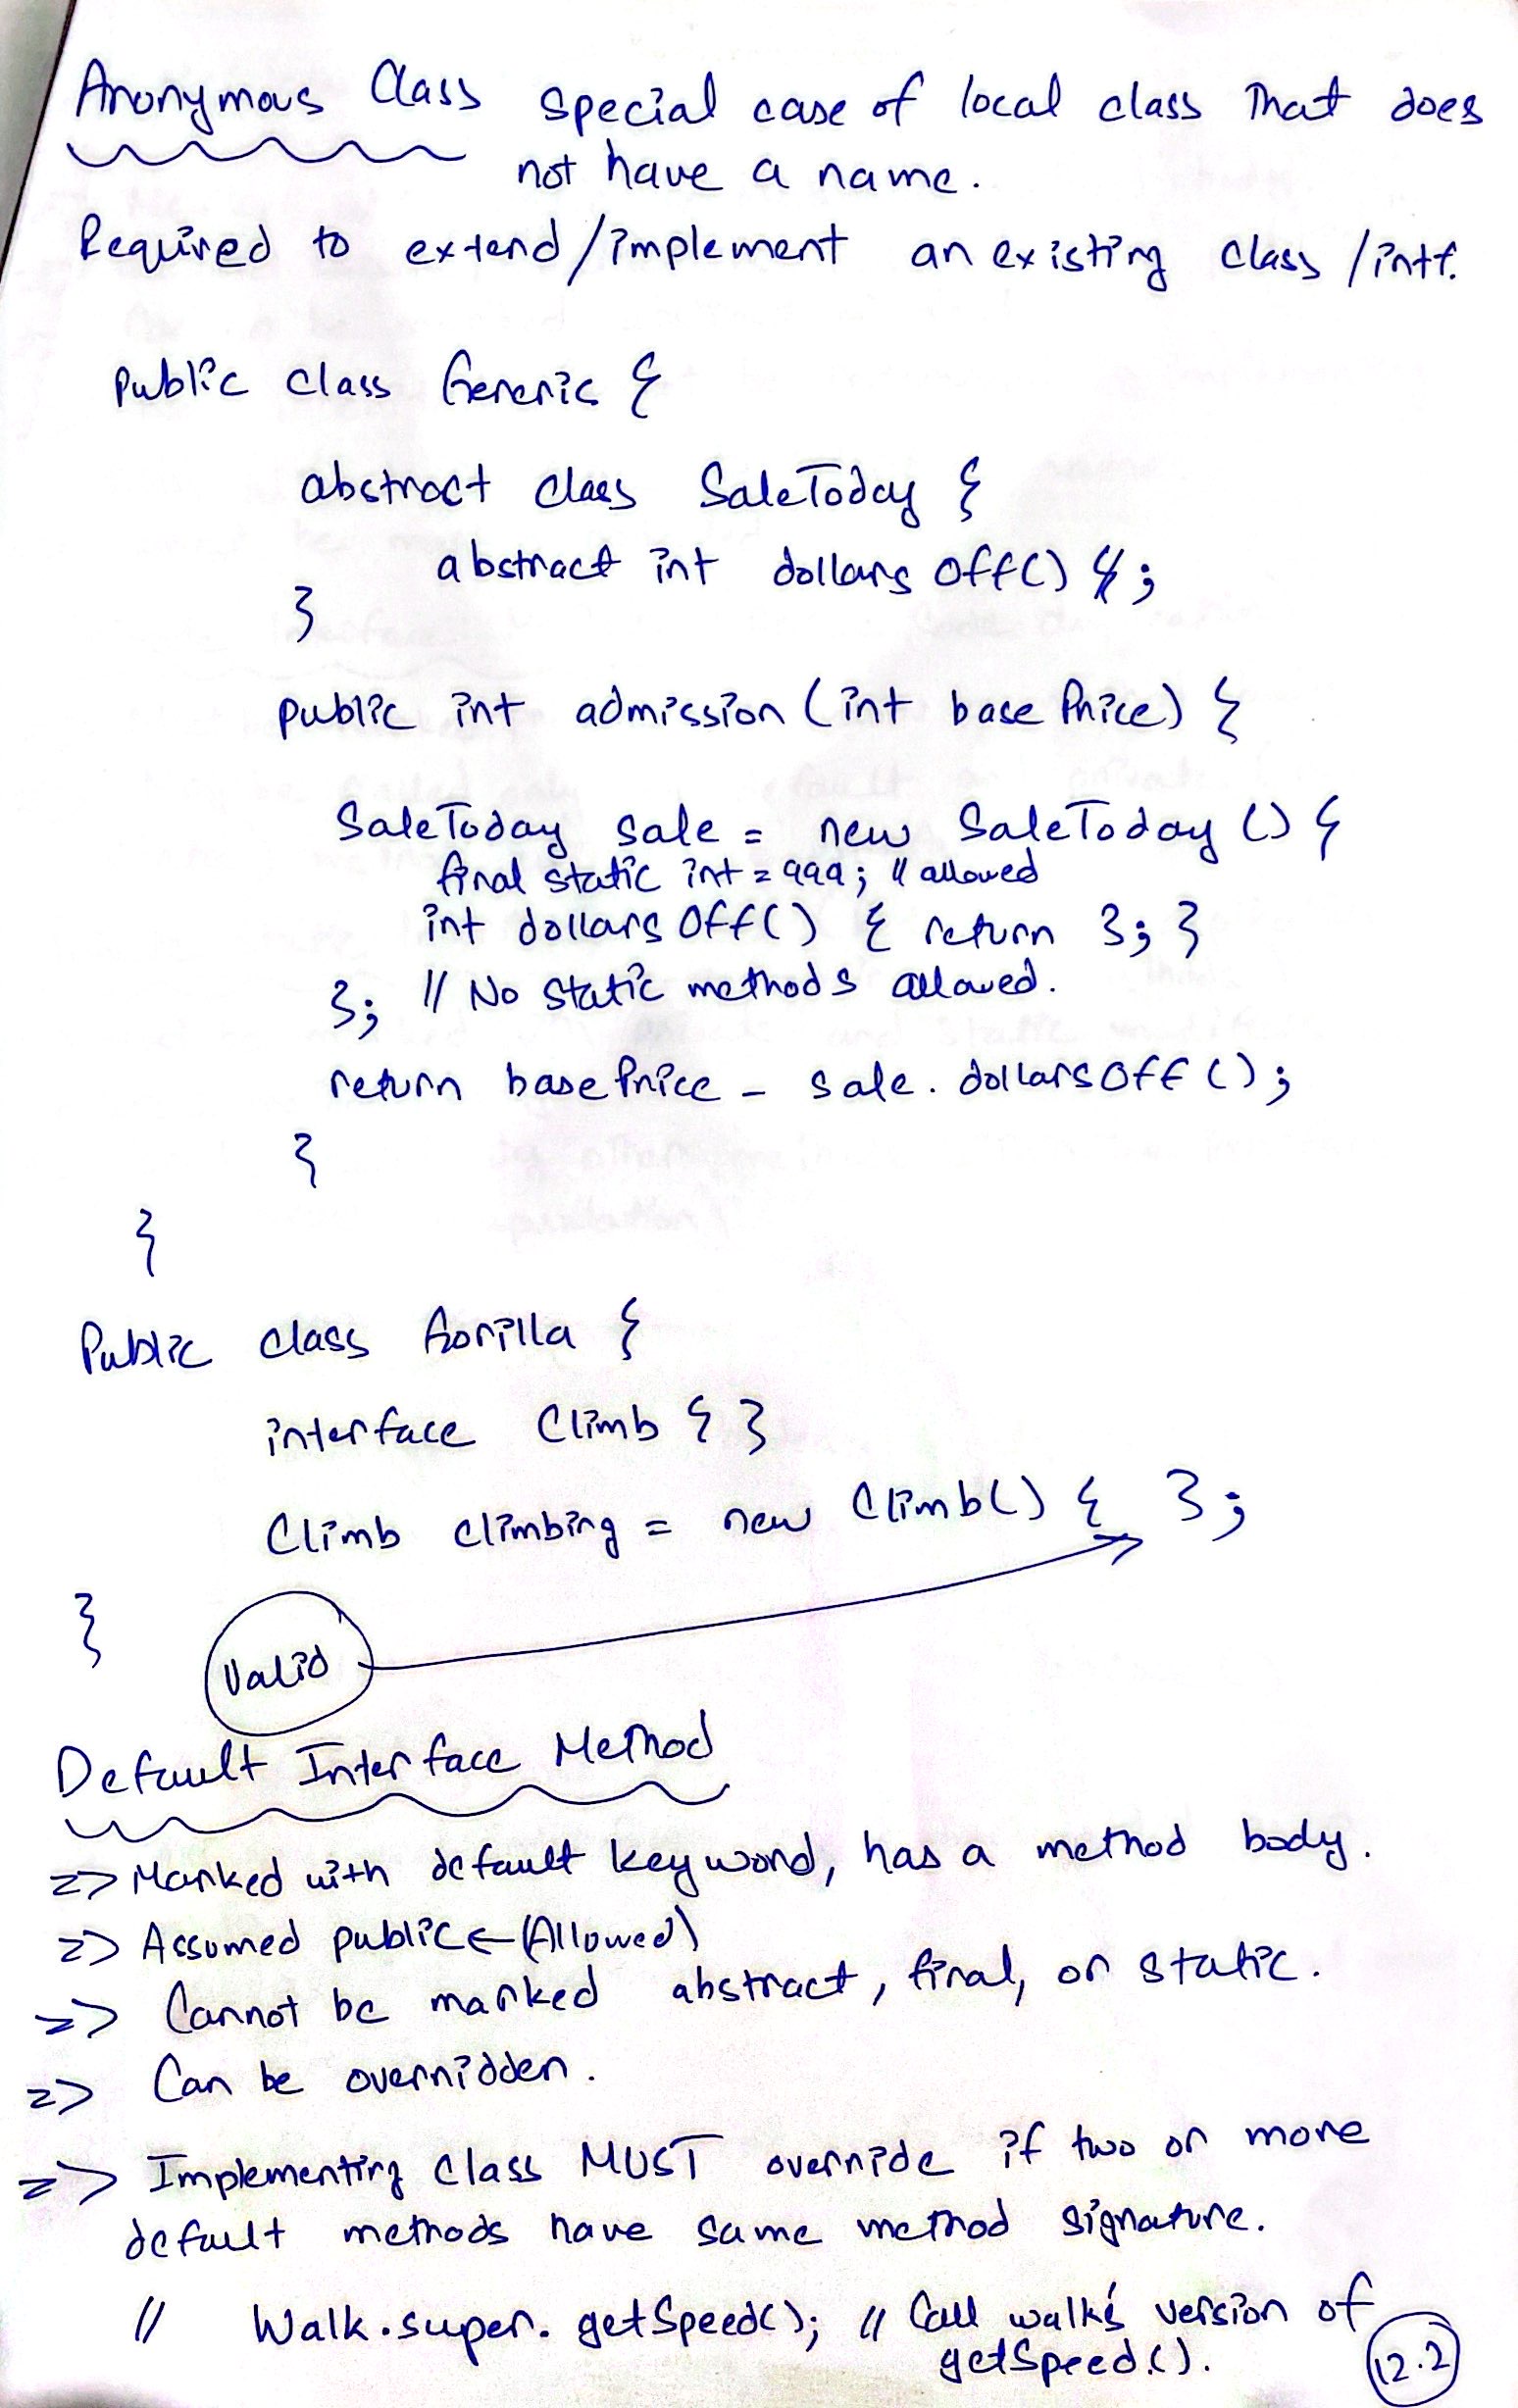 Anonymous Class special case of local class that does
not have a name.
Required to extend/implement an existing class /intf.
Public class Generic {
abstract class SaleToday {
abstract int dollarsOff() ;
}
public int admission (int basePrice) {
SaleToday sale = new SaleToday () {
final static int = 999; // allowed
int dollarsOff() { return 3; }
}; // No static methods allowed.
return basePrice - sale.dollarsOff();
}
}
Public class Gorilla {
interface Climb { }
Climb climbing = new Climb() { };
}
Valid
Default Interface Method
=> Marked with default keyword, has a method body.
=> Assumed public ← (Allowed)
=> Cannot be marked abstract, final, or static.
=> Can be overridden.
=> Implementing class MUST override if two or more
default methods have same method signature.
// Walk.super.getSpeed(); // Call walk's version of
getSpeed.().
12.2